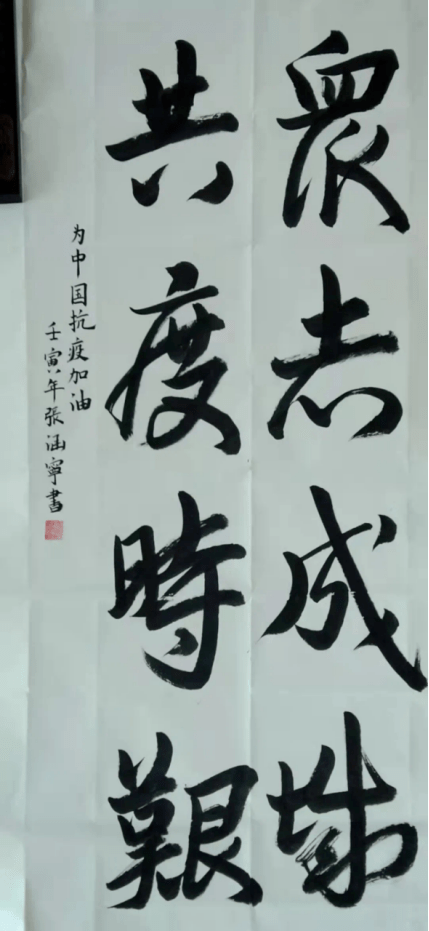 衆志成城
共度時艱
为中国抗疫加油
壬寅年张涵寧書